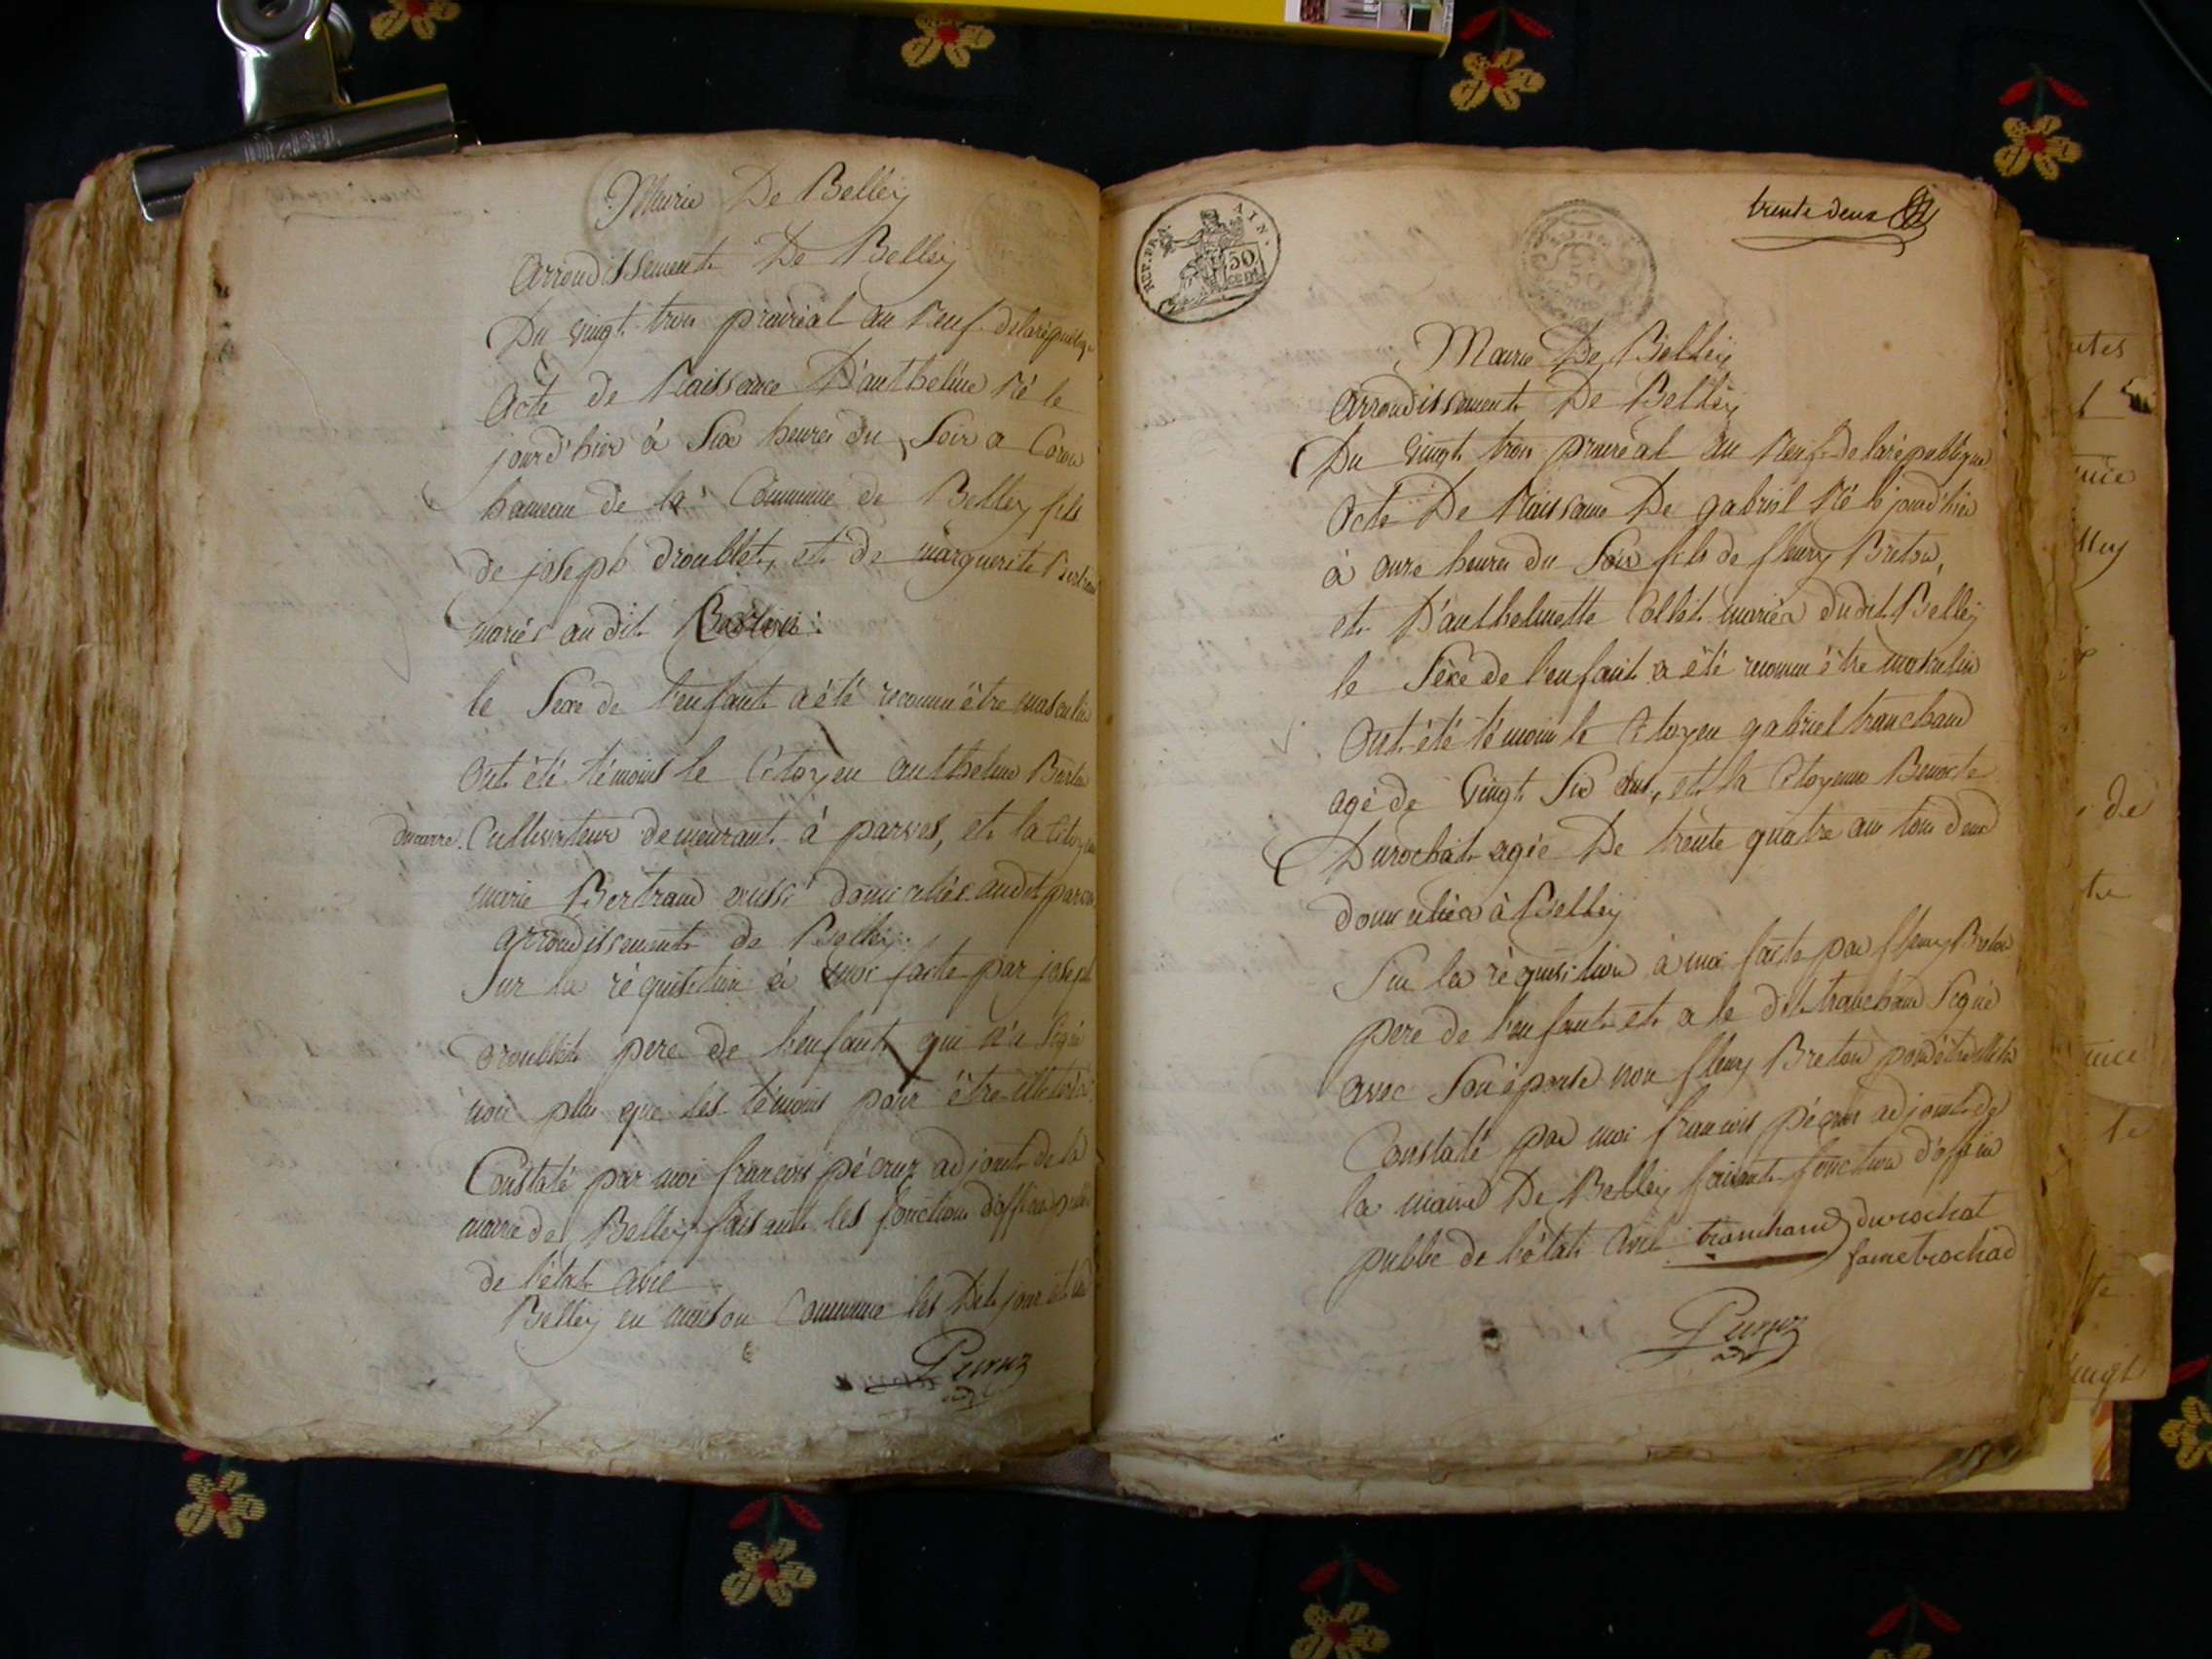 Mairie De Belley
arrondissement De Belley
Du vingt trois prairéal an neuf de la république
Acte de Naissance D'anthelme Né le
jour d'hier à Six heures du Soir a
hameau de la Commune de Belley fils
de joseph droublet, et de marguerite
mariés au dit
le Sexe de l'enfant a été reconnu être masculin
Ont été témoins le Citoyen anthelme
Cultivateur demeurant à parves, et la Citoyenne
marie Bertrand aussi domiciliés audit parves
arrondissement de Belley.
Sur la réquisition à moi faite par joseph
Droublet pere de l'enfant qui n'a Signé
non plus que les témoins pour être illétérés
Constaté par moi francois pécruz adjoint de la
mairie de Belley faisant les fonctions d'officier public
de l'état Civil
Belley en maison Commune les Dits jour et an
Pecruz
REP. FRA. AIN.
50 CENT.
trente deux
Mairie De Belley
arrondissement De Belley
Du vingt trois prairéal an neuf De la république
Acte De Naissance De gabriel Né le jour d'hier
à onze heures du Soir fils de fleury Breton,
et D'anthelmette Collet mariés dudit Belley
le Sexe de l'enfant a été reconnu être masculin
Ont été témoins le Citoyen gabriel tranchand
agé de Vingt Six ans, et la Citoyenne Benoite
Durochat agée De trente quatre ans tous deux
domiciliés à Belley
Sur la réquisition à moi faite par fleury Breton
pere de l'enfant et a le dit tranchand Signé
avec Son épouse non fleury Breton pour être illétéré
Constaté par moi francois pécruz adjoint de
la mairie De Belley faisant fonction d'officier
public de l'état Civil tranchand durochat
fame trochad
Pecruz